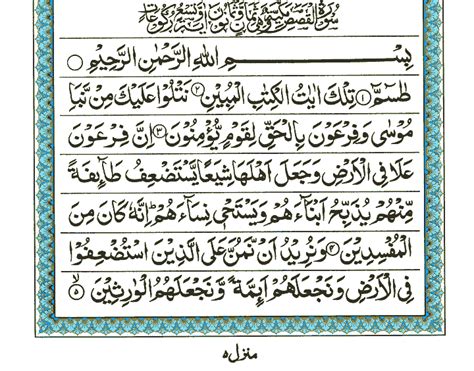 سُوْرَةُ الْقَصَصِ مَكِّيَّةٌ وَّهِيَ ثَمَانٌ وَّثَمَانُوْنَ اٰيَةً وَّتِسْعُ رُكُوْعَاتٍ
بِسْمِ اللّٰهِ الرَّحْمٰنِ الرَّحِيْمِ
طٰسٓمّٓ ۝۱ تِلْكَ اٰيٰتُ الْكِتٰبِ الْمُبِيْنِ ۝۲ نَتْلُوْا عَلَيْكَ مِنْ نَّبَاِ
مُوْسٰى وَفِرْعَوْنَ بِالْحَقِّ لِقَوْمٍ يُّؤْمِنُوْنَ ۝۳ اِنَّ فِرْعَوْنَ
عَلَا فِى الْاَرْضِ وَجَعَلَ اَهْلَهَا شِيَعًا يَّسْتَضْعِفُ طَآىِٕفَةً
مِّنْهُمْ يُذَبِّحُ اَبْنَآءَهُمْ وَيَسْتَحْىٖ نِسَآءَهُمْ ؕ اِنَّهٗ كَانَ مِنَ
الْمُفْسِدِيْنَ ۝۴ وَنُرِيْدُ اَنْ نَّمُنَّ عَلَى الَّذِيْنَ اسْتُضْعِفُوْا
فِى الْاَرْضِ وَنَجْعَلَهُمْ اَىِٕمَّةً وَّنَجْعَلَهُمُ الْوٰرِثِيْنَ ۝۵
منزل ۵